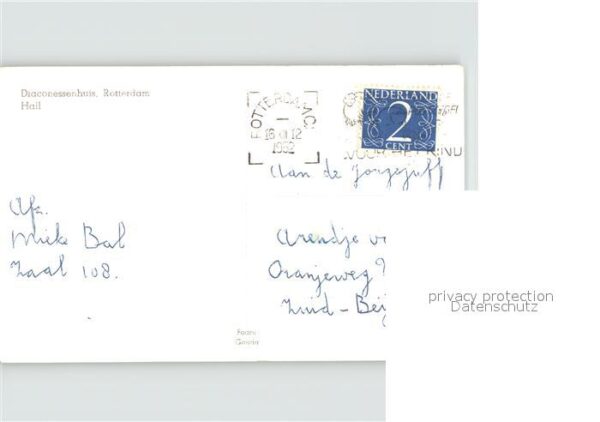 Draconessenhuis, Rotterdam
Hall
ROTTERDAM C.
16 XI 12
1952
NEDERLAND
2
CENT
VOOR HET KIND
Aan de
Afz.
Mieke Bal
Zaal 108.
Arendje v
Oranjeweg
Zuid - Bei
privacy protection
Datenschutz